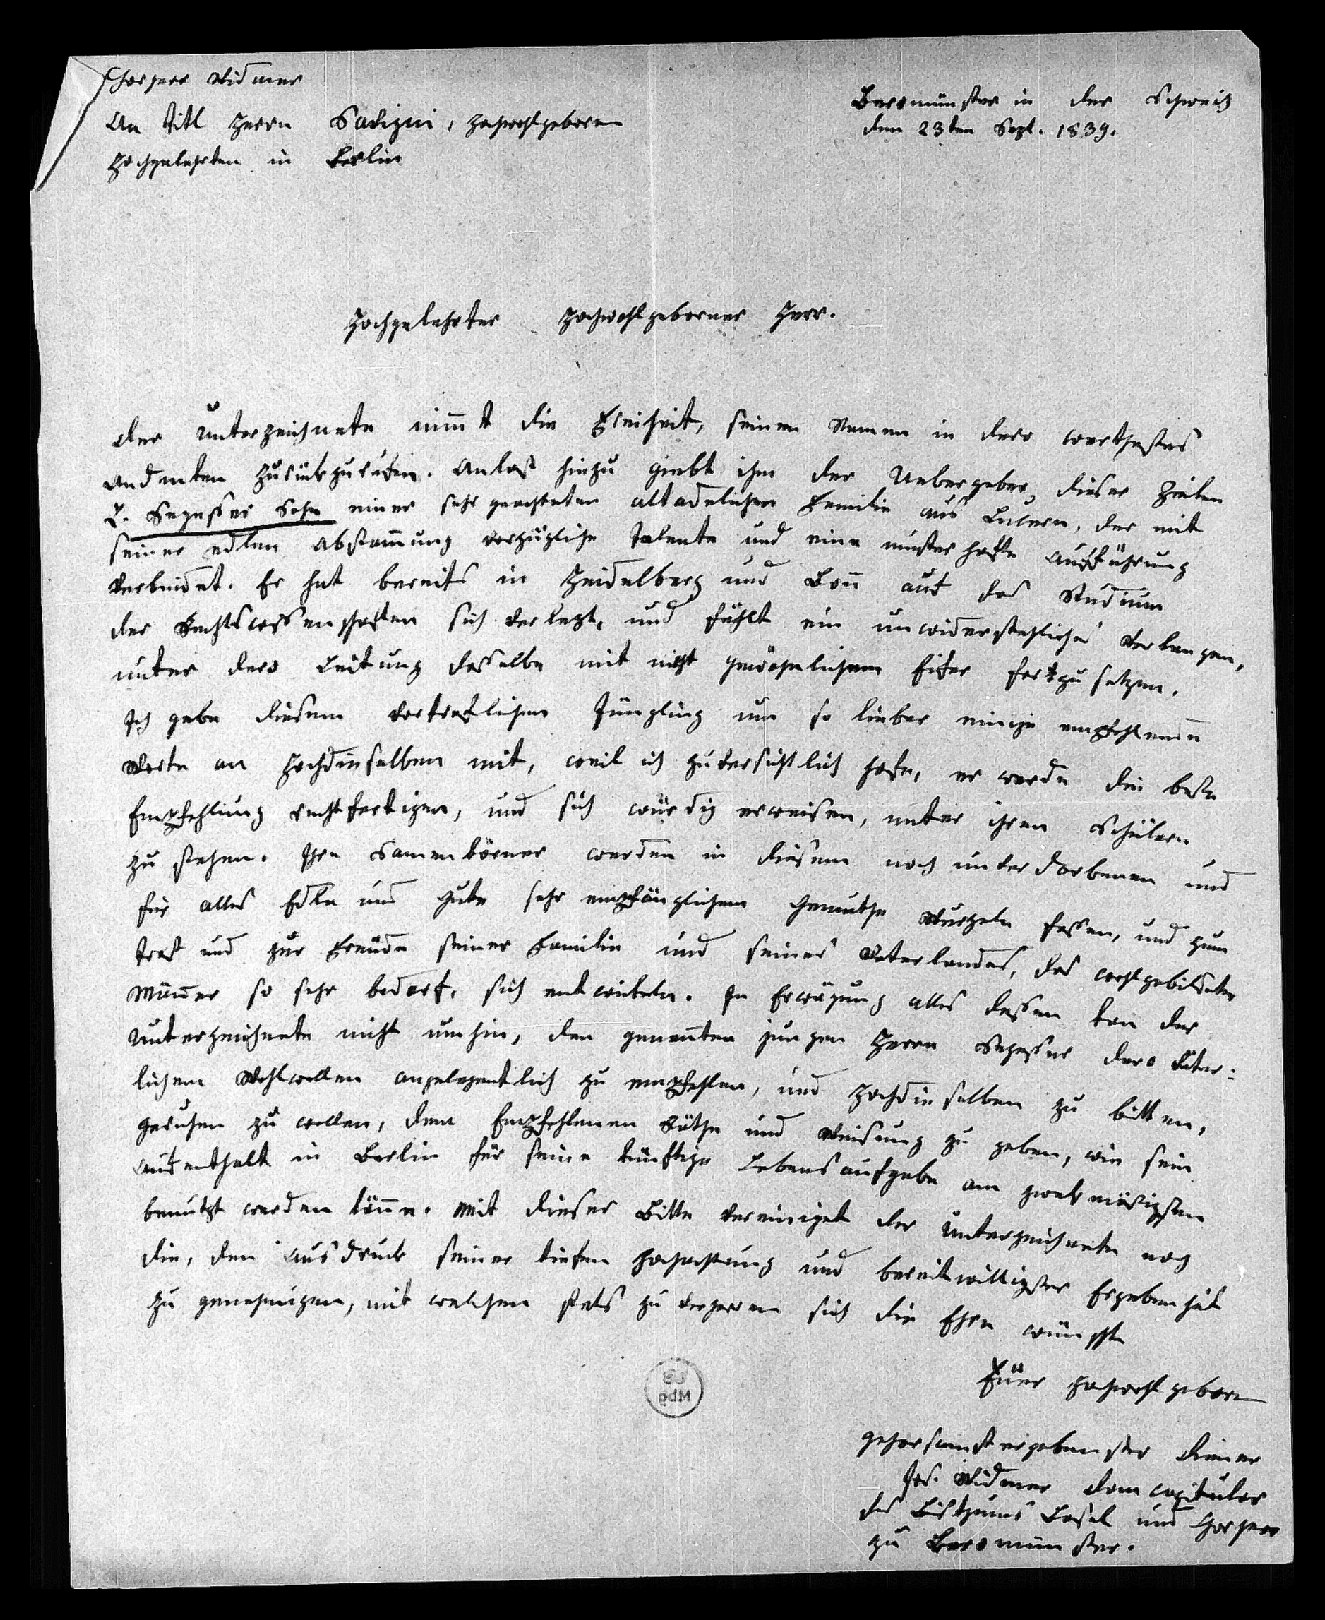 Chorherr Widmer
An Titl Herrn Savigni, Hochwohlgeboren
Hochgelehrten in Berlin
Beromünster in der Schweiz
den 23ten Sept. 1839.
Hochgelehrter Hochwohlgeborner Herr.
Der Unterzeichnete nim̄t die Freiheit, seinen Namen in dero werthestes
Andenken zurükzurufen. Anlaß hiezu giebt ihm der Uebergeber dieser Zeilen
H. Segesser Sohn einer sehr geachteten altadelichen Familie aus Luzern, der mit
seiner edlen Abstam̄ung vorzügliche Talente und eine musterhafte Aufführung
verbindet. Er hat bereits in Heidelberg und Bon̄ auf das Studium
der Rechtswissenschaften sich verlegt, und fühlt ein unwiderstehliches Verlangen,
unter dero Leitung dasselbe mit nicht gewöhnlichem Eifer fortzusetzen.
Ich gebe diesem vortreflichen Jüngling um so lieber einige empfehlende
Worte an Hochdieselben mit, weil ich zuversichtlich hoffe, er werde die beste
Empfehlung rechtfertigen, und sich würdig erweisen, unter ihren Schülern
zu stehen. Ihre Samenkörner werden in diesem noch unverdorbenen und
für alles Edle und Gute sehr empfänglichen Gemüthe Wurzeln fassen, und zum
Trost und zur Freude seiner Familie und seines Vaterlandes, das wohlgebildeter
Män̄er so sehr bedarf, sich entwickeln. In Erwägung alles dessen kan der
Unterzeichnete nicht umhin, den genan̄ten jungen Herrn Segesser dero Väter:
lichem Wohlwollen angelegentlich zu empfehlen, und Hochdieselben zu bitten,
geruhen zu wollen, dem Empfohlenen Räthe und Weisung zu geben, wie sein
Aufenthalt in Berlin für seine künftige Lebensaufgabe am zwekmäßigsten
benutzt werden kön̄e. Mit dieser Bitte vereiniget der Unterzeichnete noch
die, den Ausdruck seiner tiefen Hochachtung und bereitwilligster Ergebenheit
zu genehmigen, mit welchen stets zu verharren sich die Ehre wünscht
Euer Hochwohlgeboren
gehorsamst ergebenster Diener
Jos. Widmer Domcapitular
des Bisthums Basel und Chorherr
zu Beromünster.